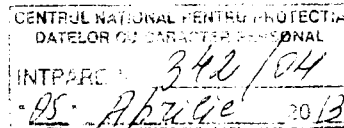 CENTRUL NAȚIONAL PENTRU PROTECȚIA
DATELOR CU CARACTER PERSONAL
INTRARE 342/04
"05" Aprilie 2013